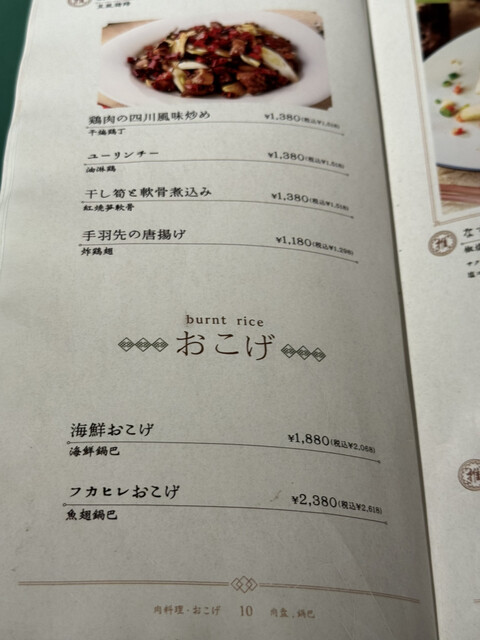 鶏肉の四川風味炒め ¥1,380(税込¥1,518)
干煸鶏丁
ユーリンチー ¥1,380(税込¥1,518)
油淋鶏
干し筍と軟骨煮込み ¥1,380(税込¥1,518)
紅焼笋軟骨
手羽先の唐揚げ ¥1,180(税込¥1,298)
炸鶏翅
burnt rice
おこげ
海鮮おこげ ¥1,880(税込¥2,068)
海鮮鍋巴
フカヒレおこげ ¥2,380(税込¥2,618)
魚翅鍋巴
肉料理・おこげ 10 肉盘、鍋巴
推
な
推